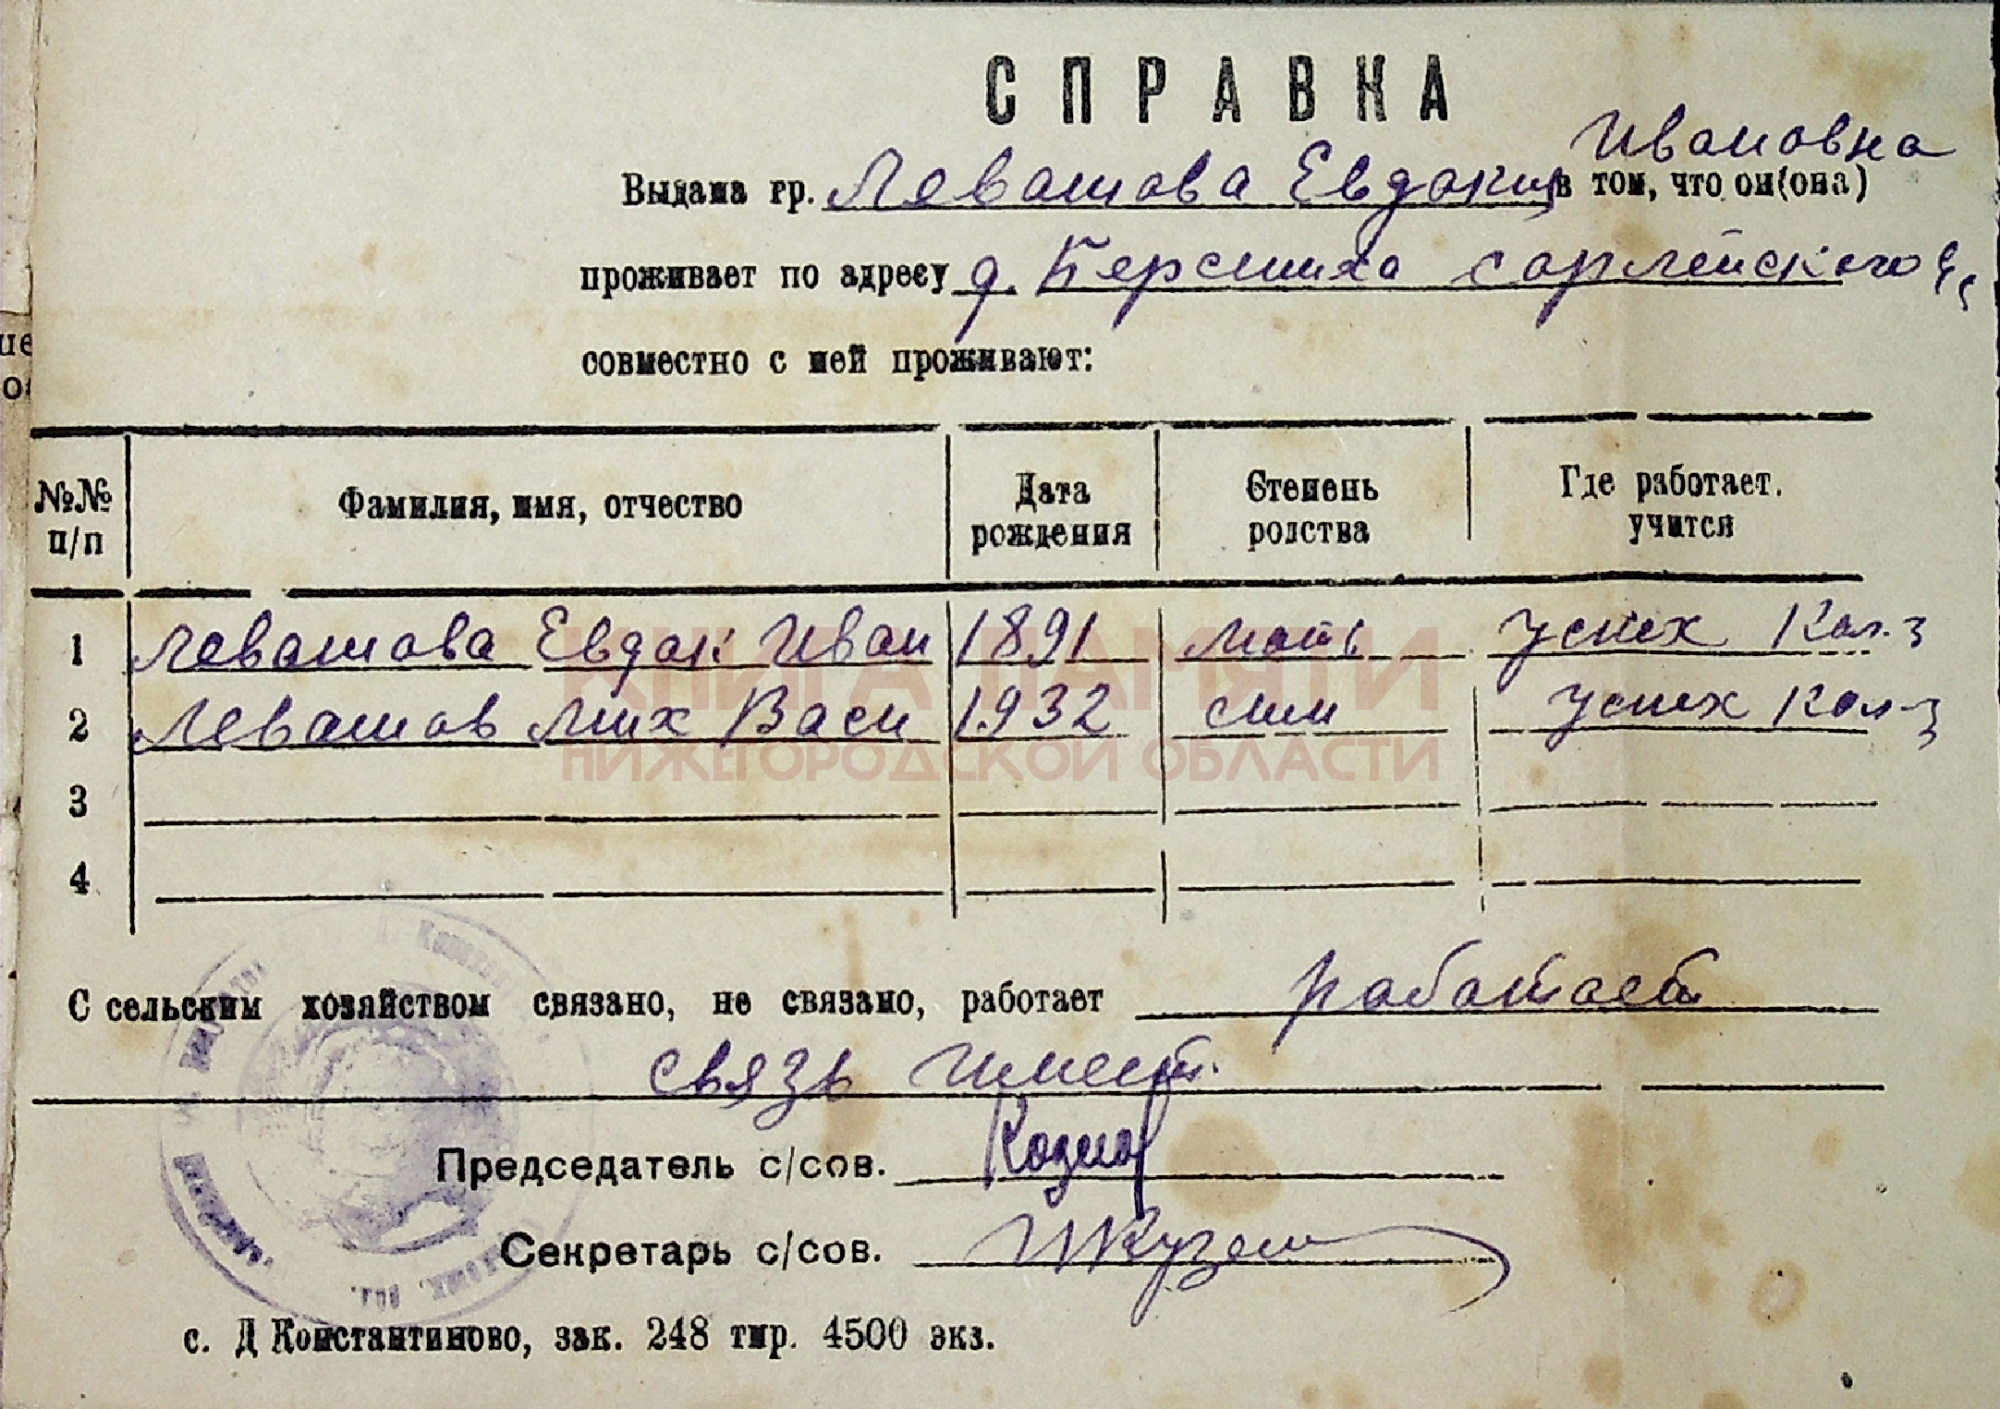 СПРАВКА
Ивановна
Выдана гр. Левашова Евдокия в том, что он(она)
проживает по адресу д. Берсниха сарлейского с/с
совместно с ней проживают:
№№ п/п Фамилия, имя, отчество Дата рождения Степень родства Где работает. учится
1 Левашова Евдок Иван 1891 мать Успех Кол-з
2 Левашов Мих Васи 1932 сын Успех Кол-з
3
4
КНИГА ПАМЯТИ
НИЖЕГОРОДСКОЙ ОБЛАСТИ
С сельским хозяйством связано, не связано, работает работает
связь имеет.
Председатель с/сов.
Секретарь с/сов.
с. Д Константиново, зак. 248 тир. 4500 экз.